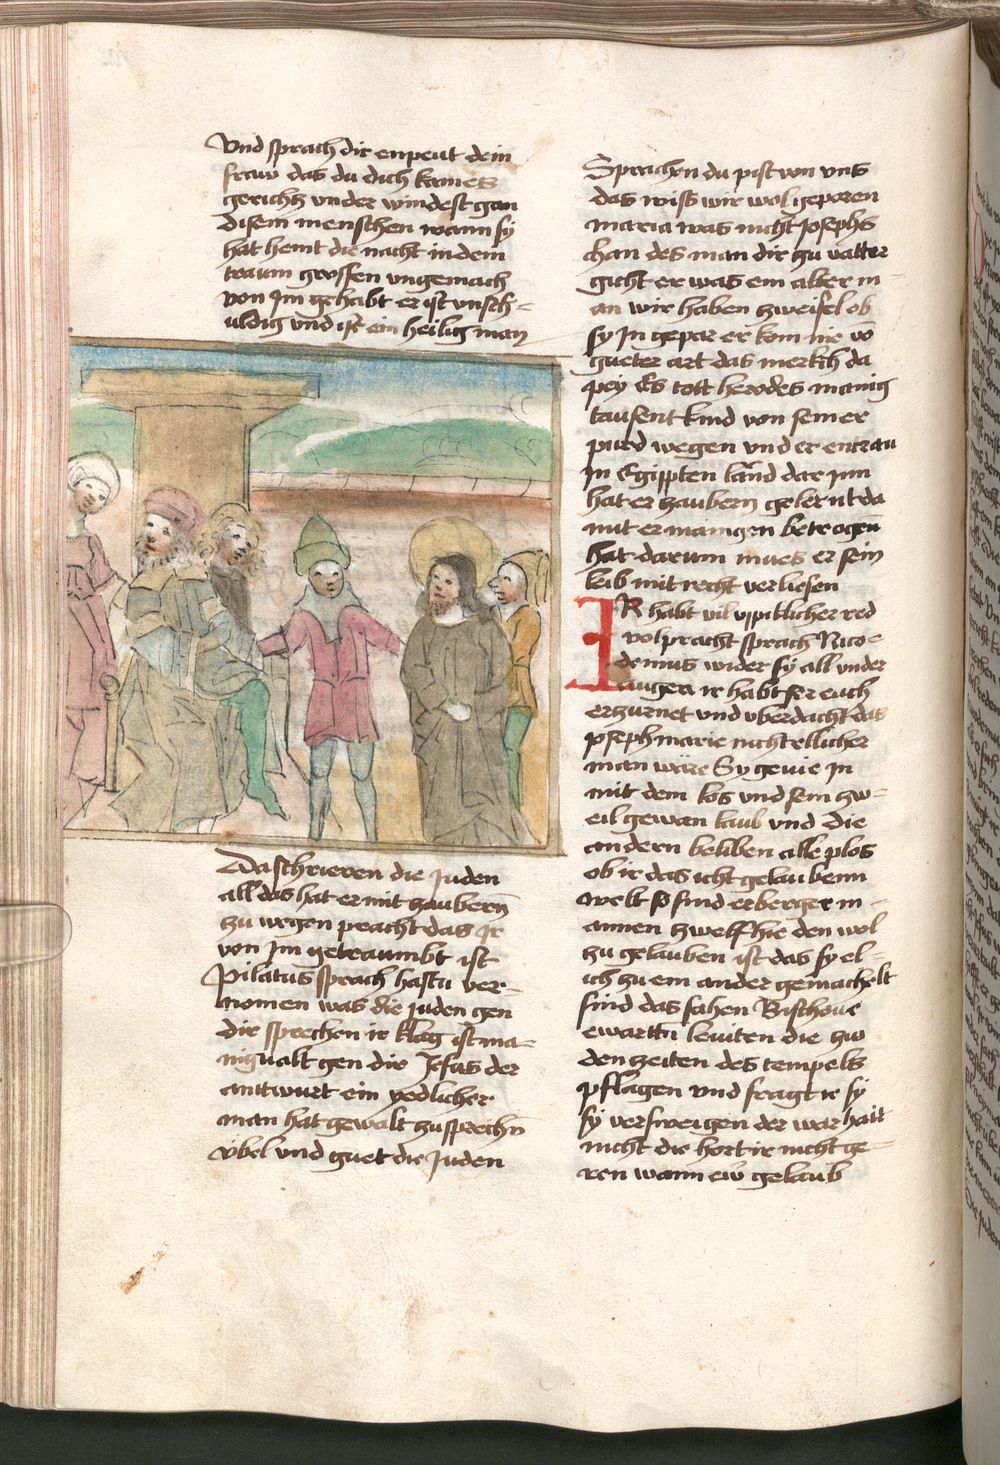 Vnd sprach dir enpeut dein
fraw das du dich kaines
gerichtz vnder windest gan
disem menschen wann sy
hat heint die nacht in dem
traum grossen vngemach
von Im gehabt er ist vnsch-
uldig vnd ist ein heilig man
Da schrieren die juden
all das hat er mit zaubern
zu wegen pracht das Ir
von Im getraumbt ist
Pilatus sprach hastu ver-
nomen was die juden gen
dir sprechen ir klag ist ma-
nigualt gen dir Jesus der
anttwurt ein yedlicher
man hat gewalt zu sprechn
vbel vnd guet die Juden
Sprachen du pist von vns
das wiss wir wol geporen
maria was nicht Josephs
chan des man dir zu vatter
gicht er was ein alter m-
an wir haben zweifel ob
sy In gepar er kom nie vo
gueter art das merkch da
pey Es tott herodes manig
tausent kind von seiner
purd wegen vnd er entran
In Egippten land dar jnn
hat er zaubern gelernt da
mit er manigen betrogen
hat darum mues er sein
leib mit recht verliesen
IR habt vil vppiklicher red
volpracht sprach Nico-
demus wider sy all vnder
augen ir habt ser euch
erzurnet vnd vberdacht das
Joseph marie nicht ellicher
man ware Sy gevie In
mit dem los vnd sein zw-
eil gewan laub vnd die
andern beliben alle plos
ob ir das icht gelaubenn
welt so sind erberger m-
annen zwelf hie den wol
zu gelauben ist das sy el-
ich zu em ander gemachelt
sind das sahen Bischoue
ewarttn leuiten die zw
den zeiten des tempels
pflagen vnd fragt ir sy
sy versweigen der warhait
nicht die hort ir nicht ge-
ren wann ew gelaub